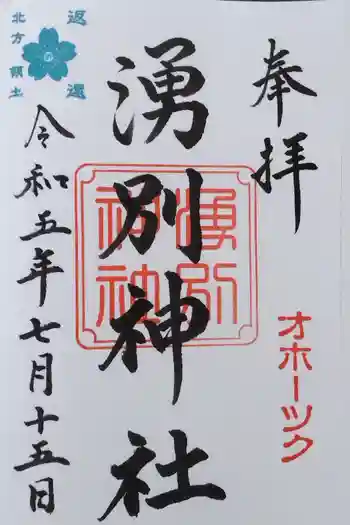 奉拝
オホーツク
湧別神社
湧別神社
返還
の
北方領土
令和五年七月十五日